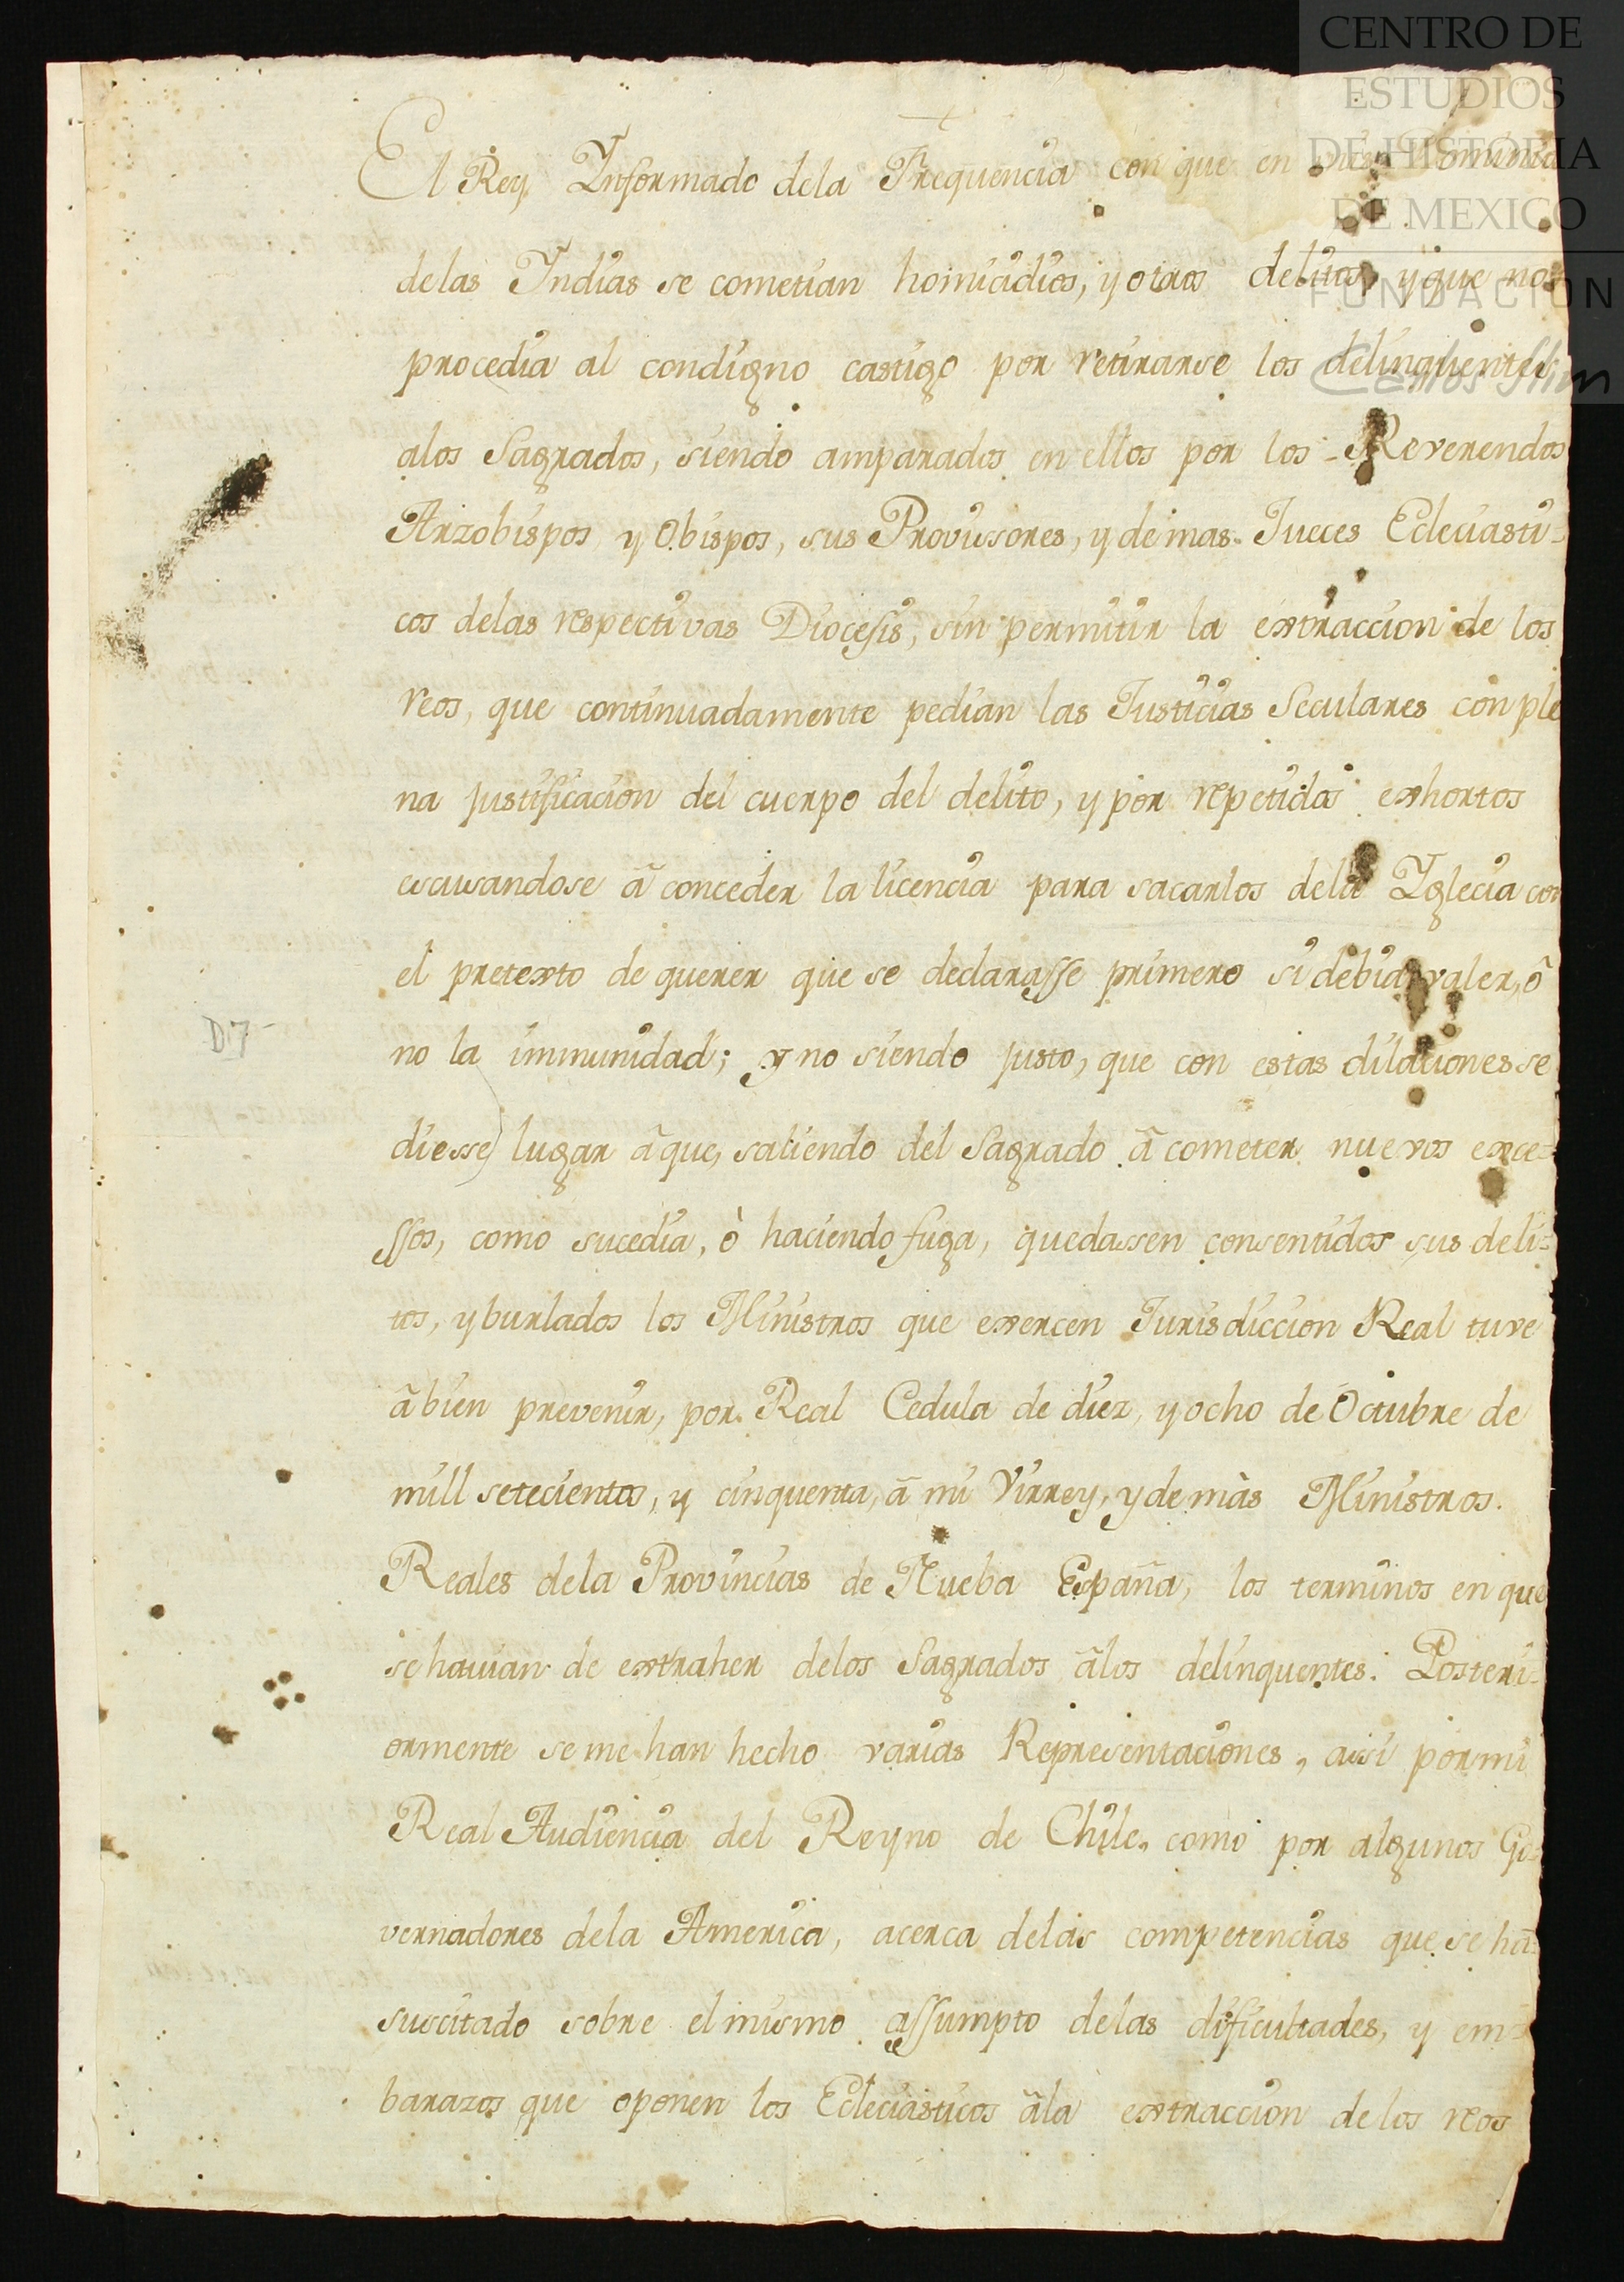 CENTRO DE
ESTUDIOS
DE HISTORIA
DE MEXICO
FUNDACION
Carlos Slim
El Rey Informado dela Frequencia con que en
delas Indias se cometian homicidios, y otros delitos, y que no se
procedia al condigno castigo por retirarse los delinquentes
alos Sagrados, siendo amparados en ellos por los Reverendos
Arzobispos y Obispos, sus Provissores, y demas Jueces Ecleciasti-
cos delas respectivas Diocesis, sin permitir la extraccion de los
reos, que continuadamente pedian las Justicias Seculares con ple
na justificacion del cuerpo del delito, y por repetidos exhortos
escusandose â conceder la licencia para sacarlos dela Yglecia con
el pretexto de querer que se declarasse primero si debia valer, ô
no la immunidad; y no siendo justo, que con estas dilaciones se
diesse lugar â que, saliendo del Sagrado â cometer nuevos exce-
ssos, como sucedia, ò haciendo fuga, quedassen consentidos sus deli-
tos, y burlados los Ministros que exercen Jurisdiccion Real tuve
â bien prevenir, por Real Cedula de diez, y ocho de Octubre de
mill setecientos, y cinquenta, â mi Virrey, y demàs Ministros.
Reales dela Provincias de Nueba España, los terminos en que
se havian de extraher delos Sagrados âlos delinquentes. Posteri-
ormente se me han hecho varias Representaciones, assi por mi
Real Audiencia del Reyno de Chile, como por algunos Go-
vernadores dela America, acerca delas competencias que se hã
suscitado sobre el mismo assumpto delas dificultades, y em-
barazos que oponen los Ecleciasticos âla extraccion de los reos
D7-